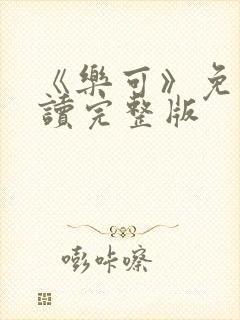 《樂可》免
讀完整版
嘭咔嚓